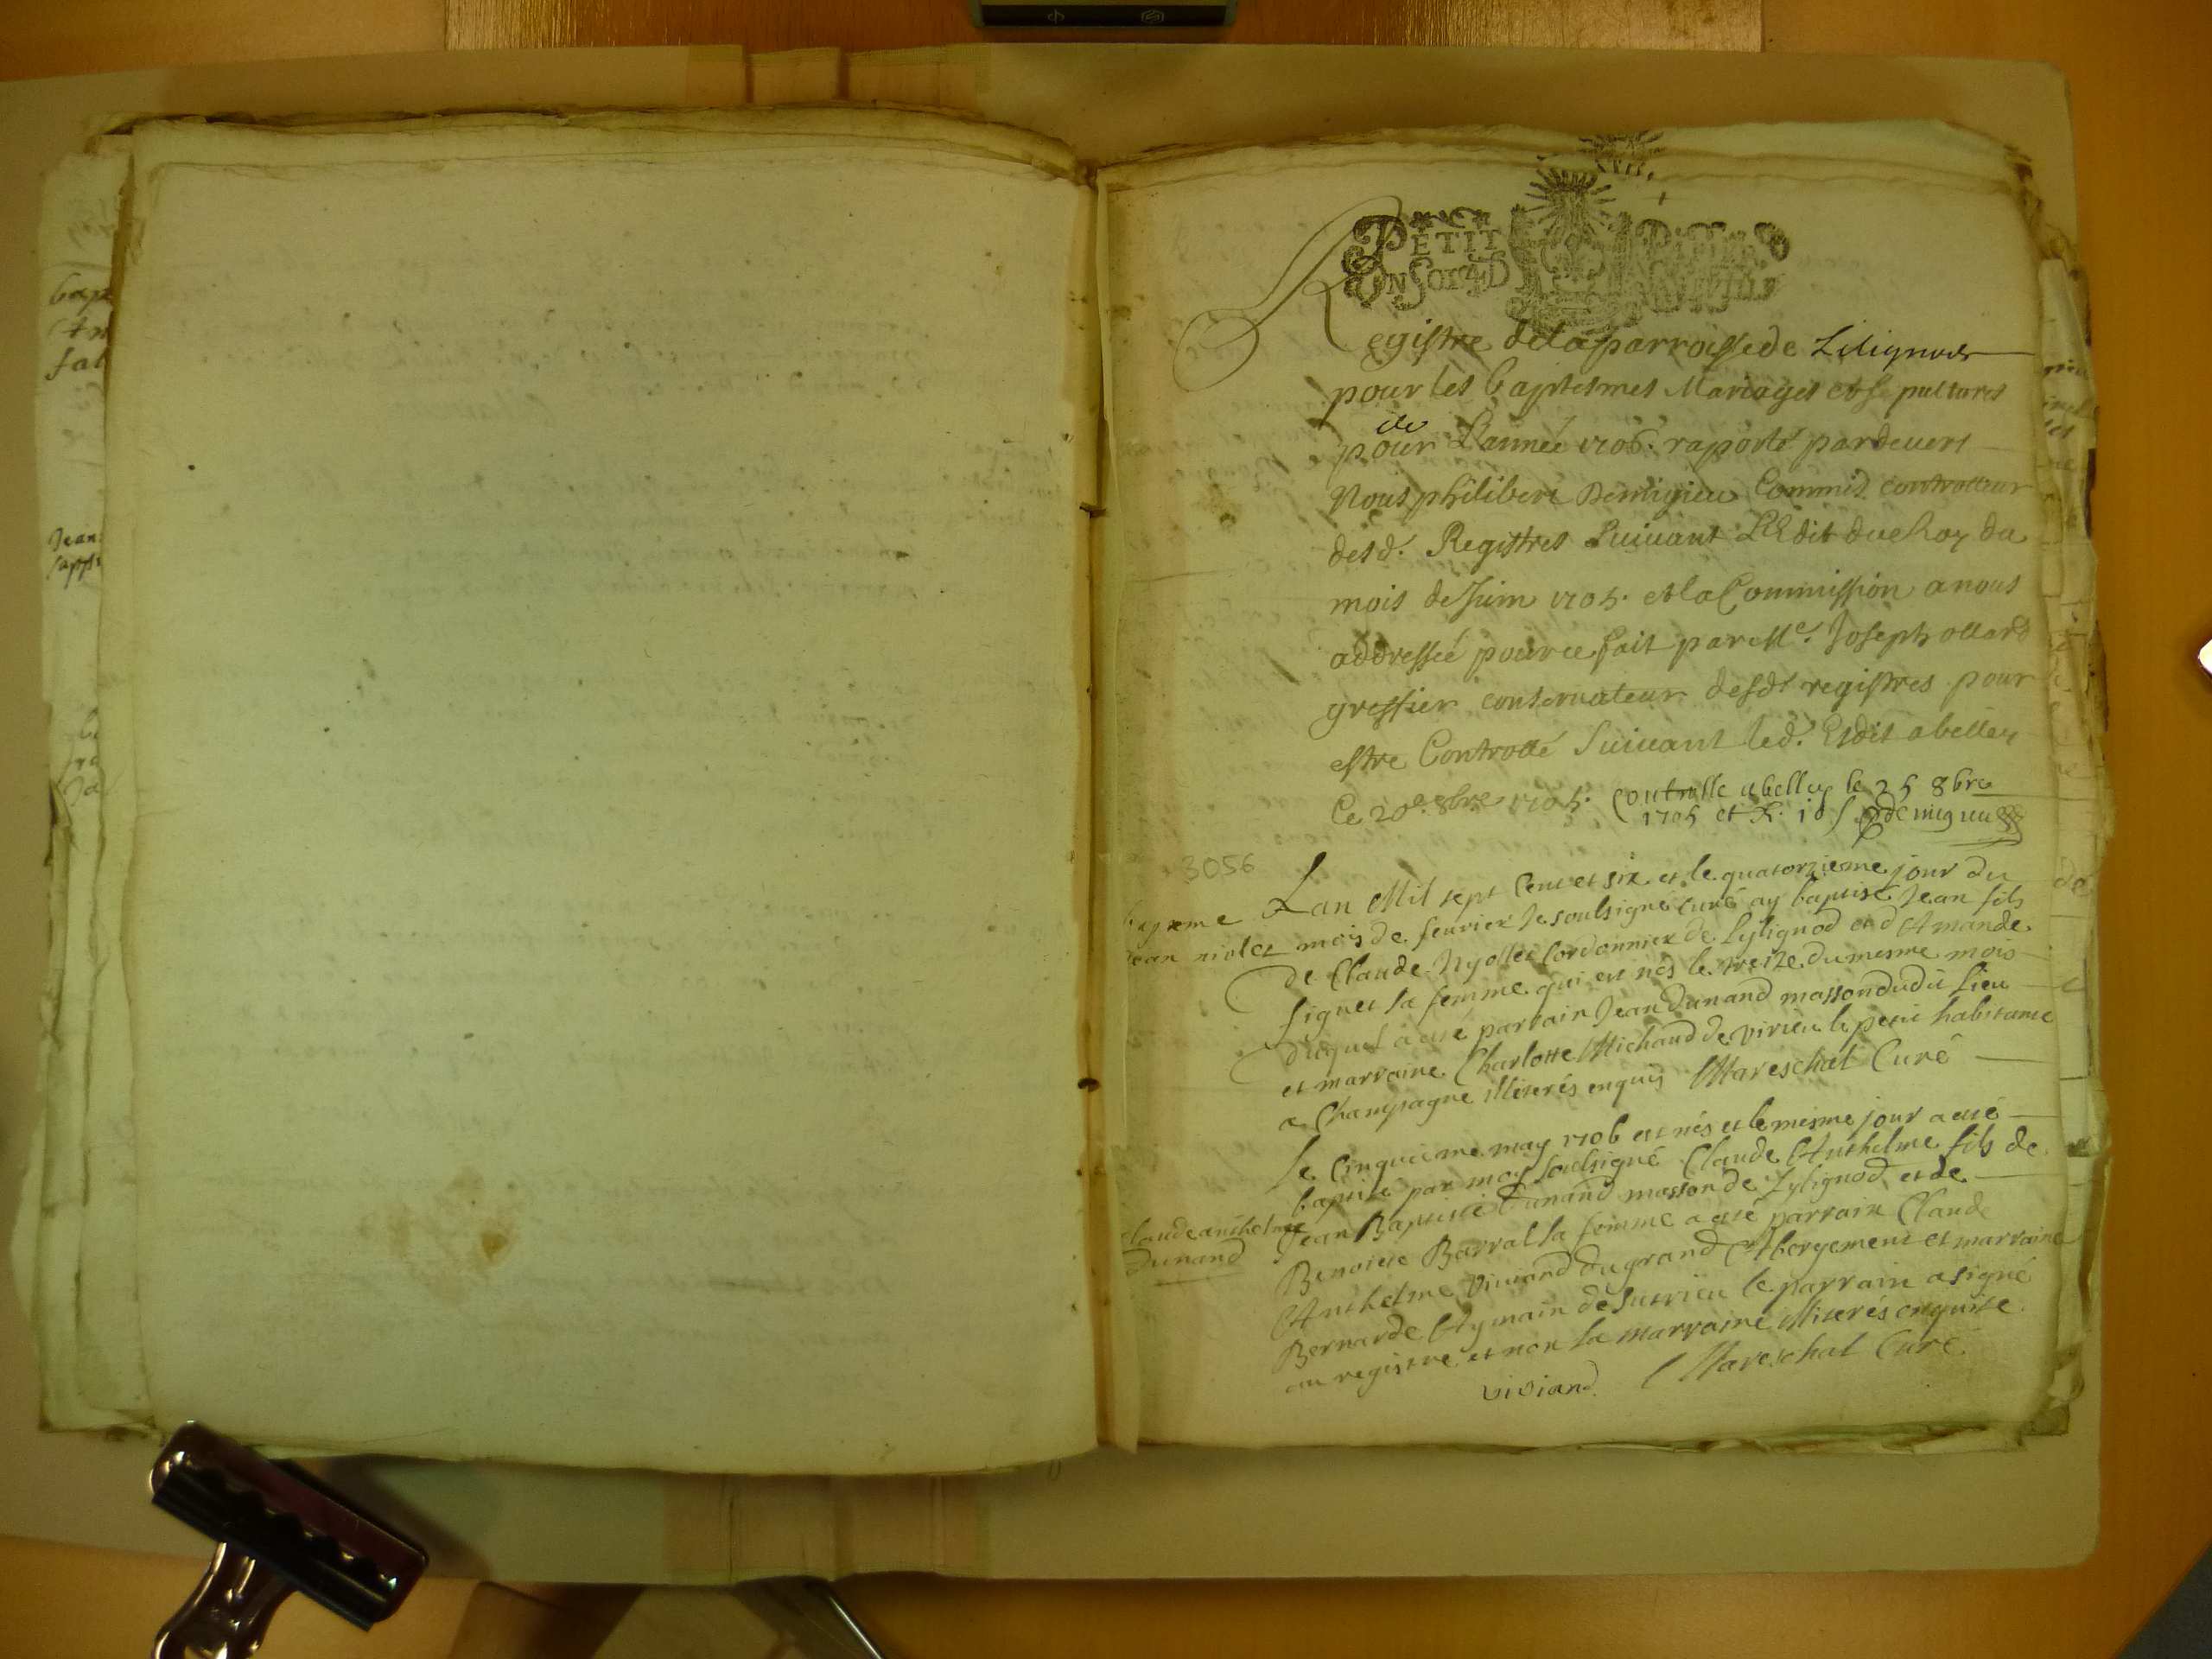 bap
fal
Jean
bapt
PETIT
UN SOL 4 D
Registre de la parroisse de Lilignods
pour les baptesmes Mariages et sepultures
de
pour L'année 1706. raporté pardevers
Nous philibert Demigieu Commis controlleur
desd. Registres suivant L'Edit du Roy du
mois de Juin 1705. et la Commission a nous
addressée pour ce fait par Me. Joseph ollard
greffier conservateur desdt registres pour
estre Controllé suivant led. Esdit a belley
Ce 20e. 8bre 1705. Controlle a belley le 25 8bre
1705 et R. 10 s Demigieu
3056
Lan Mil sept Cent et six et le quatorzieme jour du
bapteme
mois de feuvrier Je soulsigné curé ay baptisé Jean fils
Jean niolet
de Claude Nyollet Cordonnier de Lylignod et d'Amande
figuet sa femme qui est nés le treize du mesme mois
duquel a esté parrain Jean Dunand masson dudit lieu
et marraine Charlotte Michaud de virieu le petit habitante
a Champagne illiterés enquis Mareschal Curé
Le Cinquieme may 1706 est nés et le mesme jour a esté
baptisé par moy soulsigné Claude Anthelme fils de
Claude anthelme
Jean Baptiste Dunand masson de Lylignod et de
Dunand
Benoitte Barral sa femme a esté parrain Claude
Anthelme Viviand du grand Abergement et marraine
Bernarde Aymain de Sutrieu le parrain a signé
au registre et non la marraine illiterés enquise
viviand. Mareschal Curé